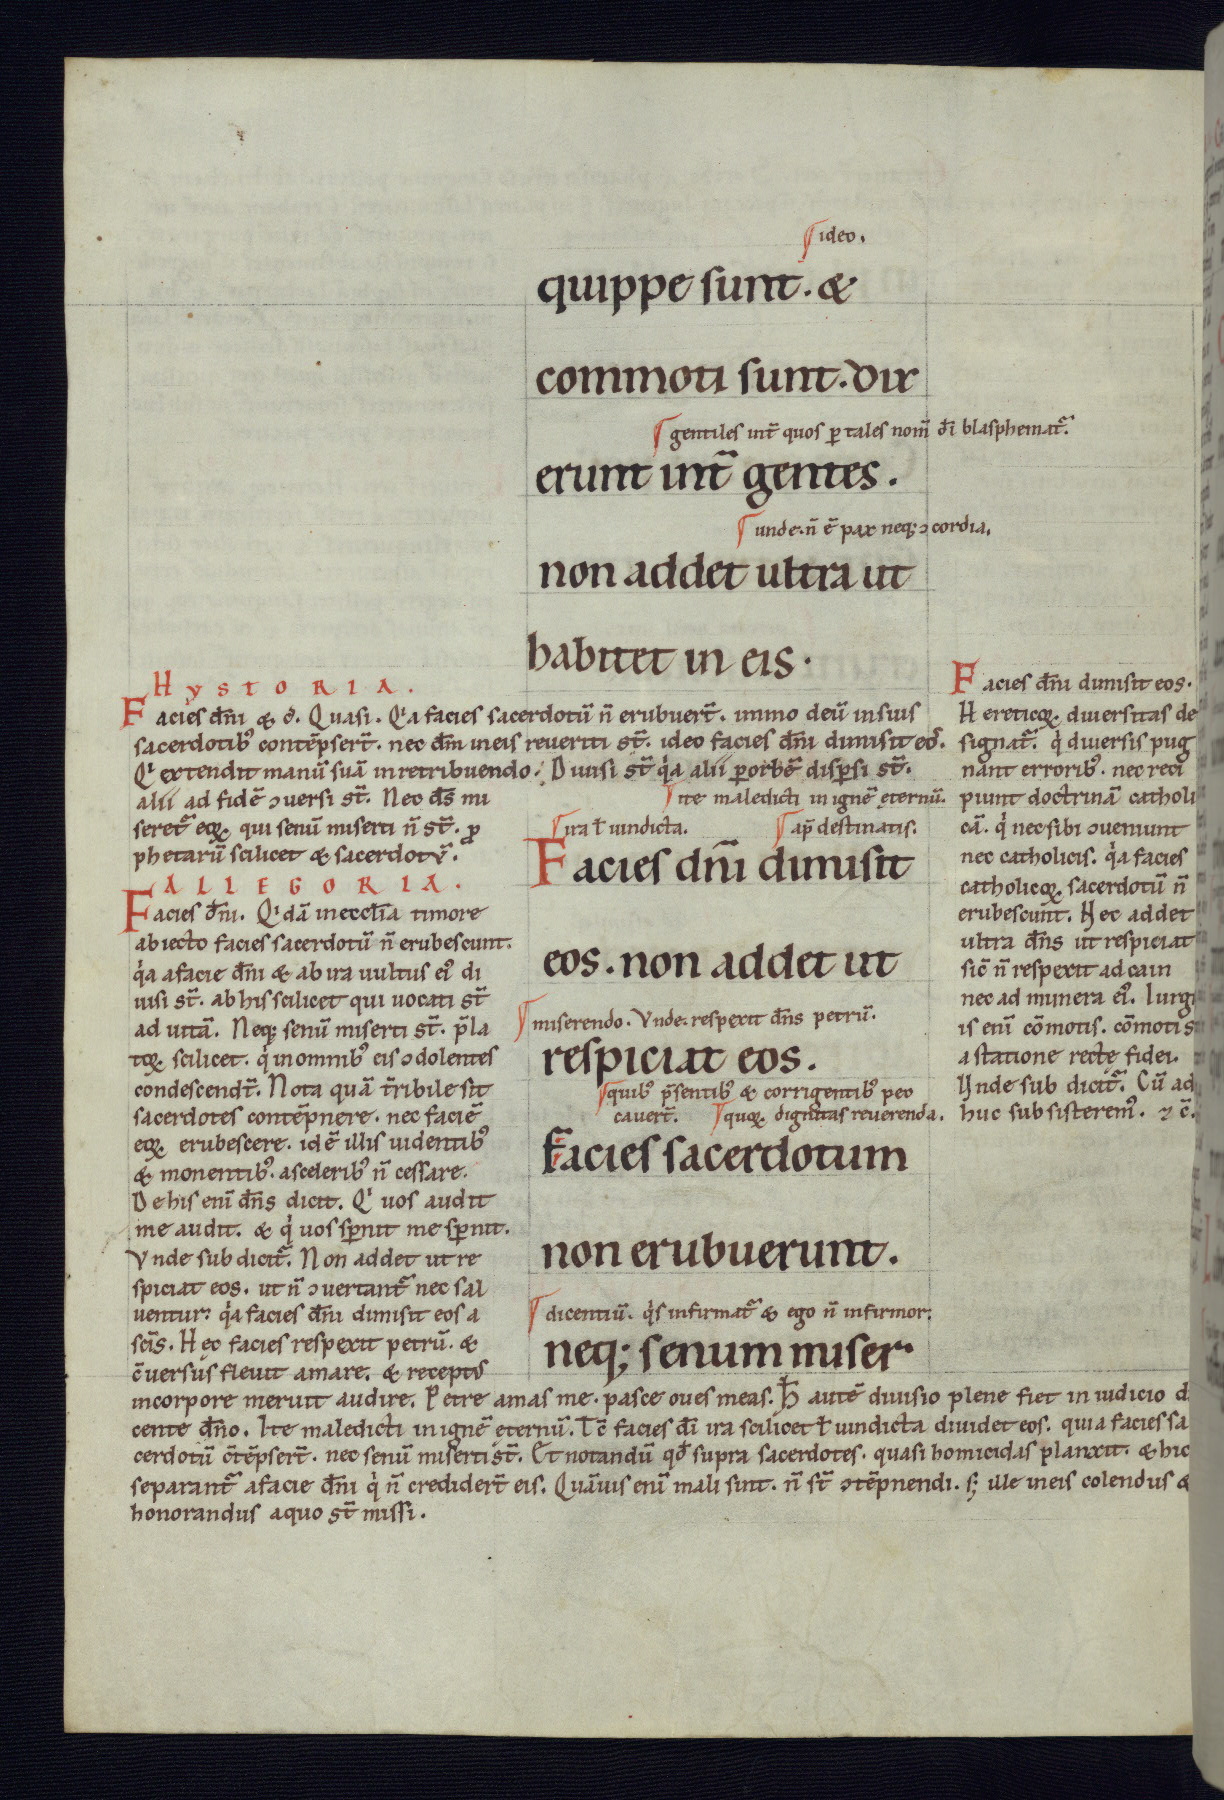 ideo.
quippe sunt. &
commoti sunt. dix
gentiles int̄ quos p̱ tales nom̄ dī blasphemat᷑.
erunt int̄ gentes.
unde. n̄ ē pax neq; ↄcordia.
non addet ultra ut
habitet in eis.
HYSTORIA.
Facies dn̄i & c̄. Quasi. Qͥa facies sacerdotū n̄ erubuer̄t. immo deū in suis
sacerdotibꝰ contēpser̄t. nec dn̄m in eis reueriti st̄. ideo facies dn̄i diuisit eoꝰ.
Qͥ extendit manū suā in retribuendo. Diuisi st̄ qͥa alii p̱ orbē disp̱si st̄.
alii ad fidē ↄuersi st̄. Nec dn̄s mi
seret᷑ eoꝝ qui senū miserti n̄ st̄. ꝓ
phetarū scilicet & sacerdotū.
ALLEGORIA.
Facies dn̄i. Qͥdā in eccl̄ia timore
abiecto facies sacerdotū n̄ erubescunt.
qͥa a facie dn̄i & ab ira uultus eiꝰ di
uisi st̄. ab his scilicet qui uocati st̄
ad uitā. Neq; senū miserti st̄. p̄la
toꝝ scilicet. qͥ in omnibꝰ eis ↄdolentes
condescendt̄. Nota quā t̄ribile sit
sacerdotes contēpnere. nec faciē
eoꝝ erubescere. idē illis uidentibꝰ
& monentibꝰ. a sceleribꝰ n̄ cessare.
De his enī dn̄s dicit. Qͥ uos audit
me audit. & qͥ uos sp̱nit me sp̱nit.
Vnde sub dicit᷑. Non addet ut re
spiciat eos. ut n̄ ↄuertant᷑ nec sal
uentur: qͥa facies dn̄i diuisit eos a
sc̄is. Hec facies respexit petrū. &
c̄uersus fleuit amare. & receptꝰ
in corpore meruit audire. Petre amas me. pasce oues meas. H̄ autē diuisio plene fiet in iudicio d
cente dn̄o. Ite maledicti in ignē eternū. T̄c facies dī ira scilicet ł uindicta diuidet eos. quia facies sa
cerdotū c̄tēpser̄t. nec senū miserti st̄. Et notandū qd̄ supra sacerdotes. quasi homicidas planxit. & hic
separant᷑ a facie dn̄i qͥ n̄ credider̄t eis. Quāuis enī mali sint. n̄ st̄ ↄtēpnendi. s; ille in eis colendus &
honorandus a quo st̄ missi.
ite maledicti in ignē eternū.
ira ł uindicta. ap̄ destinatis.
Facies dn̄i diuisit
eos. non addet ut
miserendo. Vnde. respexit dn̄s petrū.
respiciat eos.
quibꝰ p̄sentibꝰ & corrigentibꝰ pec
cauer̄t. quoꝝ dignitas reuerenda.
Facies sacerdotum
non erubuerunt.
dicentiū. qͥs infirmat᷑ & ego n̄ infirmor:
neq; senum miser
Facies dn̄i diuisit eos.
Hereticoꝝ diuersitas de
signat᷑. qͥ diuersis pug
nant erroribꝰ. nec reci
piunt doctrinā catholi
cā. qͥ nec sibi ↄueniunt
nec catholicis. qͥa facies
catholicoꝝ sacerdotū n̄
erubescunt. Nec addet
ultra dn̄s ut respiciat
sic̄ n̄ respexit ad cain
nec ad munera eiꝰ. Iurgi
is enī cōmotis. cōmoti s
a statione recte fidei.
Vnde sub dicit᷑. Cū ad
huc subsisteremꝰ. ⁊ c̄.